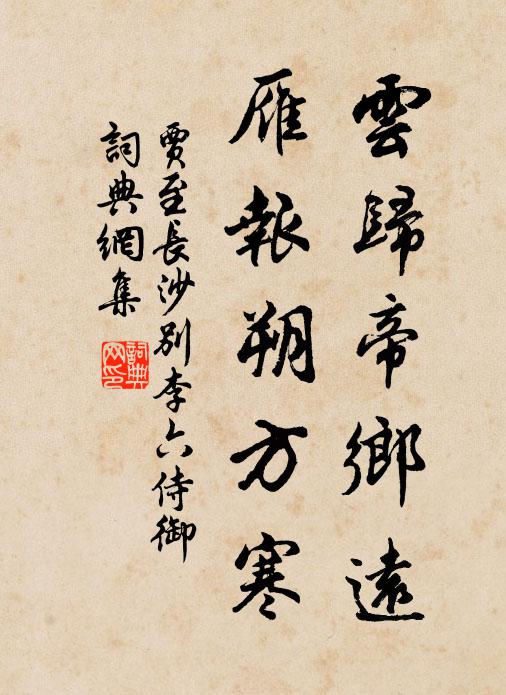 雲歸帝鄉遠
雁報朔方寒
賈至長沙別李六侍御
詞典網集
詞典
网印